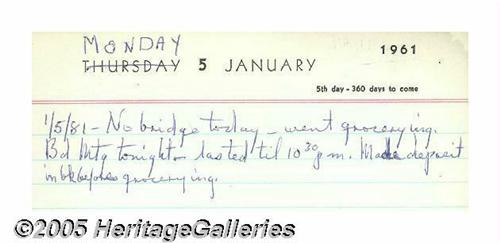 MONDAY
THURSDAY 5 JANUARY 1961
5th day - 360 days to come
1/5/81 - No bridge today - went grocerying.
Bd Mtg tonight - lasted til 10 30 pm. Made deposit
in bk before grocerying.
©2005 HeritageGalleries